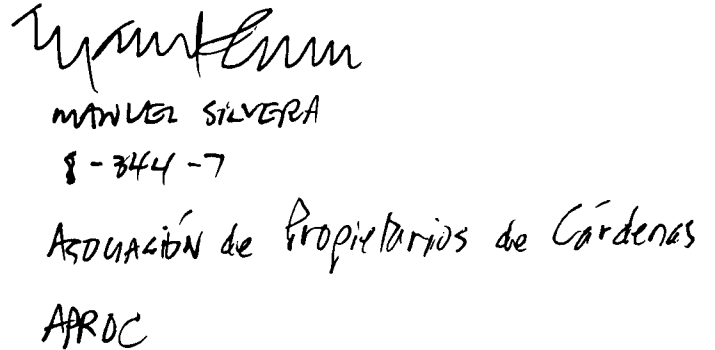 MANUEL SILVERA
8-344-7
ASOCIACIÓN de Propietarios de Cárdenas
APROC